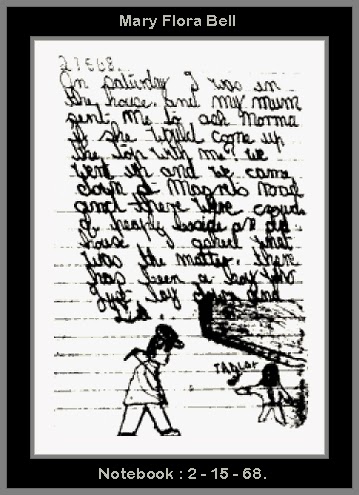 Mary Flora Bell
27568.
On saturday I was in
the house. and my mum
sent Me to ask Norma
if she Would come up
the top with me? we
went up and we came
down at Magrets Road
and there were crowds
of beside an old
house. I asked what
was the matter. there
has been a boy who
Just lay down and
Died.
TABLOt
Notebook : 2 - 15 - 68.